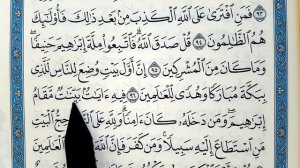 ٩٣ فَمَنِ ٱفْتَرَىٰ عَلَى ٱللَّهِ ٱلْكَذِبَ مِنۢ بَعْدِ ذَٰلِكَ فَأُو۟لَٰٓئِكَ
هُمُ ٱلظَّٰلِمُونَ ٩٤ قُلْ صَدَقَ ٱللَّهُ فَٱتَّبِعُوا۟ مِلَّةَ إِبْرَٰهِيمَ حَنِيفًا
وَمَا كَانَ مِنَ ٱلْمُشْرِكِينَ ٩٥ إِنَّ أَوَّلَ بَيْتٍ وُضِعَ لِلنَّاسِ لَلَّذِى
بِبَكَّةَ مُبَارَكًا وَهُدًى لِّلْعَٰلَمِينَ ٩٦ فِيهِ ءَايَٰتٌۢ بَيِّنَٰتٌ مَّقَامُ
إِبْرَٰهِيمَ وَمَن دَخَلَهُۥ كَانَ حِجُّ ٱلْبَيْتِ
مَنِ ٱسْتَطَاعَ إِلَيْهِ سَبِيلًا وَمَن كَفَرَ فَإِنَّ ٱللَّهَ ٱلْعَٰلَمِينَ